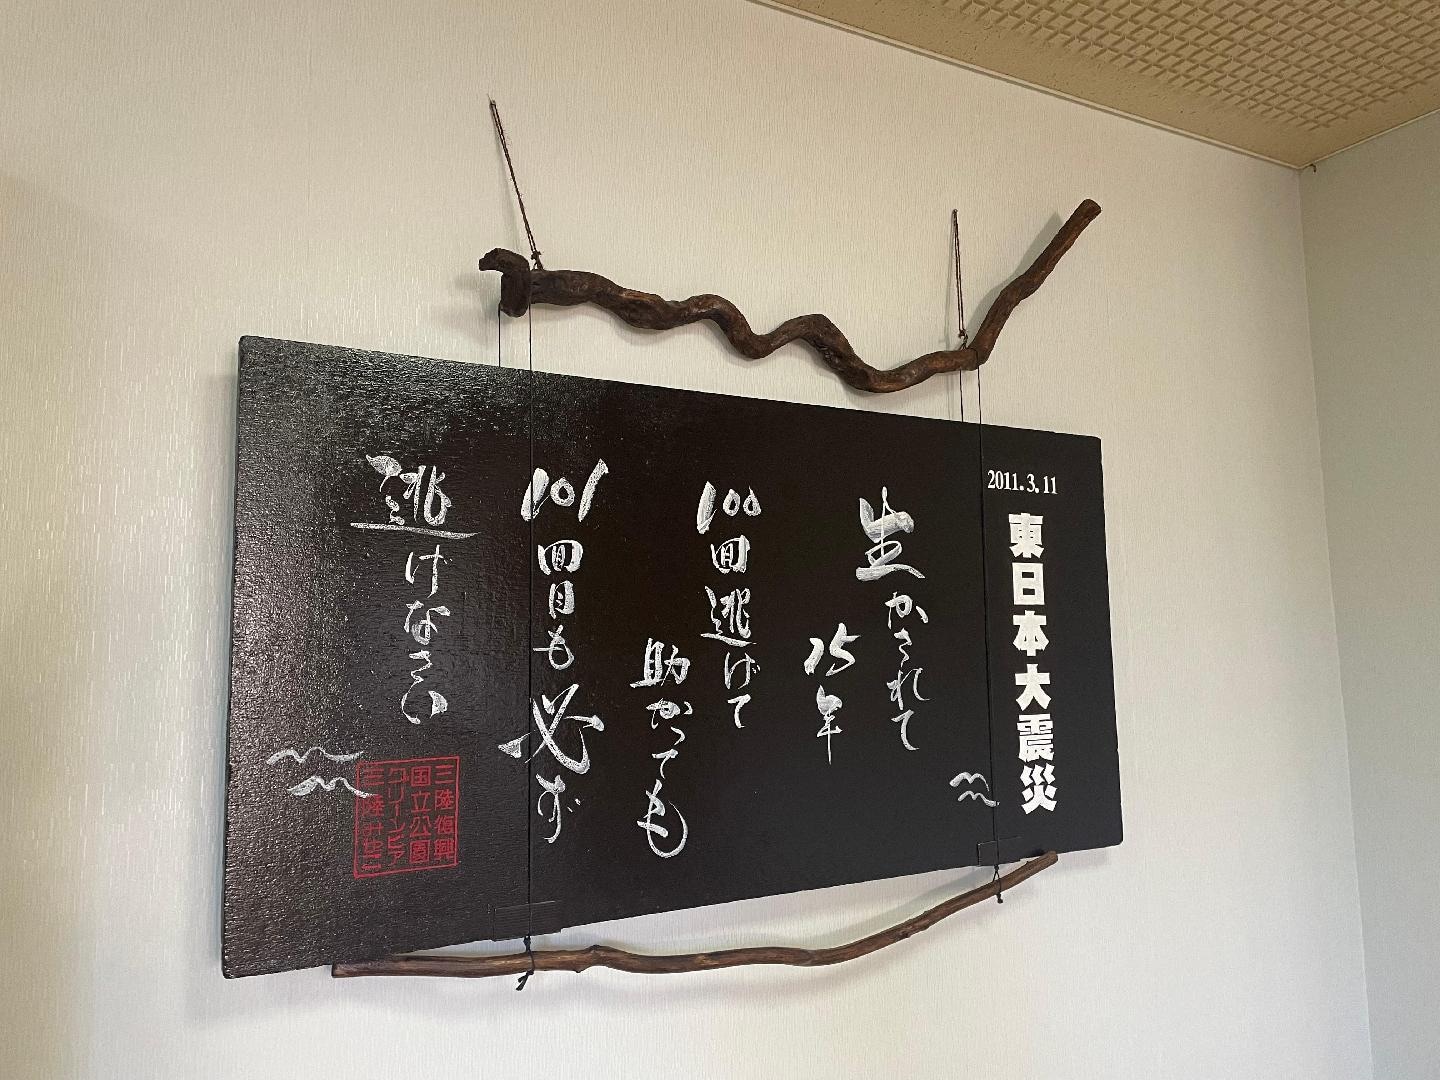 2011.3.11
東日本大震災
生かされて
15年
100回逃げて
助かっても
101回目も必ず
逃げなさい
三陸復興
国立公園
グリーンピア
三陸みやこ